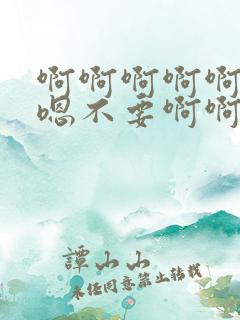 啊啊啊啊啊
嗯不要啊啊
譚山山
未经同意禁止转载